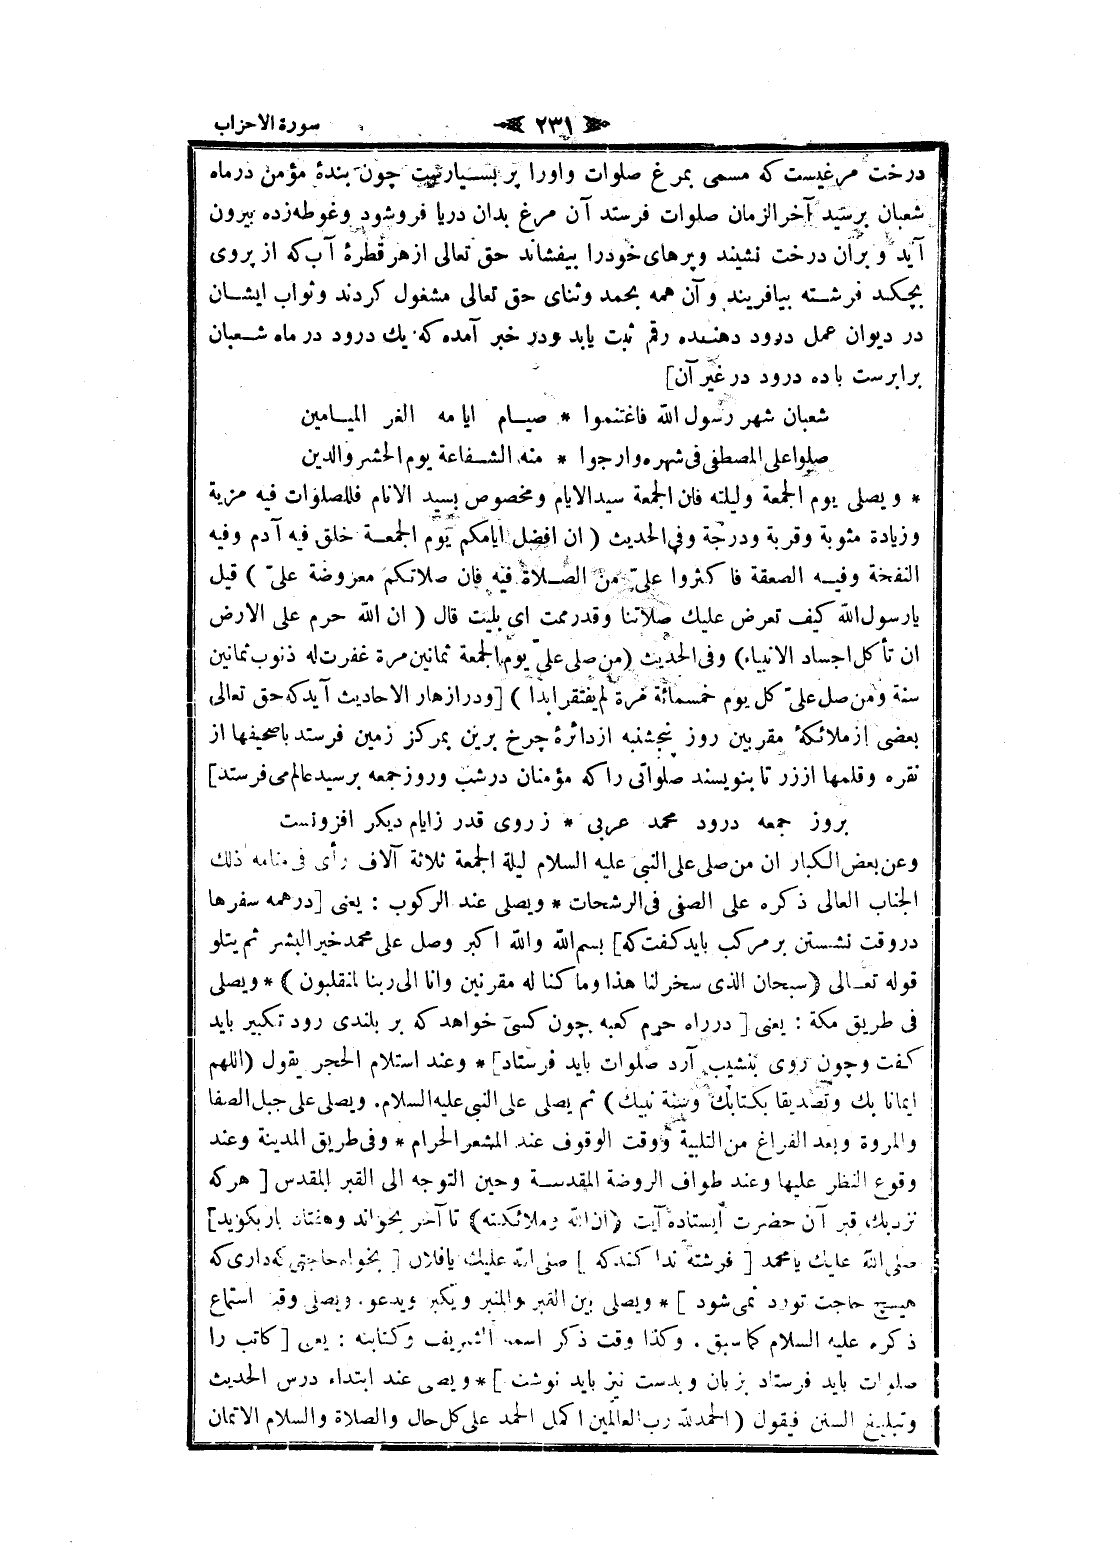 سورة الاحزاب
٢٣١
درخت مرغيست كه مسمى بمرغ صلوات واورا پر بسيارست چون بندۀ مؤمن درماه
شعبان برسيد آخرالزمان صلوات فرستد آن مرغ بدان دريا فروشود وغوطه‌زده بيرون
آيد وبران درخت نشيند وپرهاى خودرا بيفشاند حق تعالى ازهر قطرۀ آب كه از پروى
بچكد فرشته بيافريند وآن همه بحمد وثناى حق تعالى مشغول كردند وثواب ايشان
در ديوان عمل درود دهنده رقم ثبت يابد ودر خبر آمده كه يك درود در ماه شعبان
برابرست باده درود درغير آن]
شعبان شهر رسول الله فاغتنموا * صيام ايامه الغر الميامين
صلوا على المصطفى فى شهره وارجوا * منه الشفاعة يوم الحشر والدين
* ويصلى يوم الجمعة وليلته فان الجمعة سيد الايام ومخصوص بسيد الانام فللصلوات فيه مزية
وزيادة مثوبة وقربة ودرجة وفى الحديث ( ان افضل ايامكم يوم الجمعة خلق فيه آدم وفيه
النفخة وفيه الصعقة فاكثروا علىّ من الصلاة فيه فان صلاتكم معروضة علىّ ) قيل
يارسول الله كيف تعرض عليك صلاتنا وقدرممت اى بليت قال ( ان الله حرم على الارض
ان تأكل اجساد الانبياء) وفى الحديث (من صلى علىّ يوم الجمعة ثمانين مرة غفرت له ذنوب ثمانين
سنة ومن صل علىّ كل يوم خمسمائة مرة لم يفتقر ابدا ) [ودر ازهار الاحاديث آيد كه حق تعالى
بعضى از ملائكۀ مقربين روز پنجشنبه از دائرۀ چرخ برين بمركز زمين فرستد باصحيفها از
نقره وقلمها اززر تا بنويسند صلواتى را كه مؤمنان درشب وروز جمعه برسيد عالم مى‌فرستد]
بروز جمعه درود محمد عربى * زروى قدر زايام ديكر افزونست
وعن بعض الكبار ان من صلى على النبى عليه السلام ليلة الجمعة ثلاثة آلاف رأى فى منامه ذلك
الجناب العالى ذكره على الصفى فى الرشحات * ويصلى عند الركوب : يعنى [درهمه سفرها
دروقت نشستن بر مركب بايد كفت كه] بسم الله والله اكبر وصل على محمد خير البشر ثم يتلو
قوله تعالى (سبحان الذى سخر لنا هذا وما كنا له مقرنين وانا الى ربنا لمنقلبون ) * ويصلى
فى طريق مكة : يعنى [ درراه حرم كعبه چون كسى خواهد كه بر بلندى رود تكبير بايد
كفت وچون روى بنشيب آرد صلوات بايد فرستاد] * وعند استلام الحجر يقول (اللهم
ايمانا بك وتصديقا بكتابك وسنة نبيك) ثم يصلى على النبى عليه السلام. ويصلى على جبل الصفا
والمروة وبعد الفراغ من التلبية ووقت الوقوف عند المشعر الحرام * وفى طريق المدينة وعند
وقوع النظر عليها وعند طواف الروضة المقدسة وحين التوجه الى القبر المقدس [ هركه
نزديك قبر آن حضرت ايستاده آيت (ان الله وملائكته) تا آخر بخواند وهفتاد بار بكويد]
صلى الله عليك يا محمد [ فرشته ندا كند كه ] صلى الله عليك يافلان [ بخواه حاجتى كه دارى كه
هيچ حاجت تورد نمى شود ] * ويصلى بين القبر والمنبر ويكبر ويدعو. ويصلى وقت استماع
ذكره عليه السلام كما سبق . وكذا وقت ذكر اسمه الشريف وكتابته : يعنى [كاتب را
صلوات بايد فرستاد بزبان وبدست نيز بايد نوشت ] * ويصلى عند ابتداء درس الحديث
وتبليغ السنن فيقول ( الحمد لله رب العالمين اكمل الحمد على كل حال والصلاة والسلام الاتمان